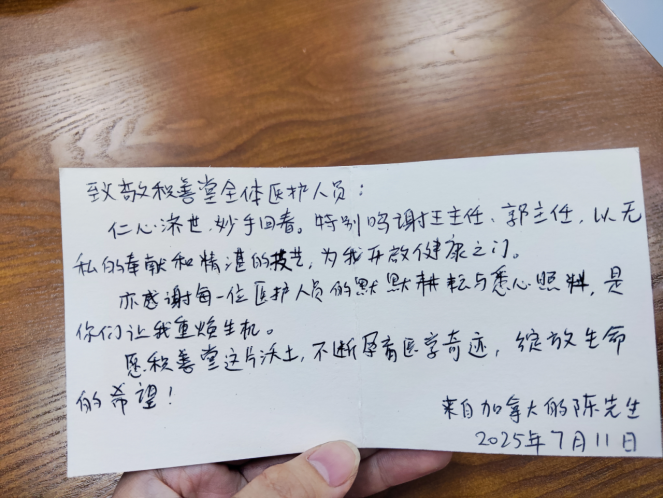 致敬积善堂全体医护人员：
仁心济世，妙手回春。特别鸣谢王主任、郭主任，以无
私的奉献和精湛的技艺，为我开启健康之门。
亦感谢每一位医护人员的默默耕耘与悉心照料，是
你们让我重焕生机。
愿积善堂这片沃土，不断孕育医学奇迹，绽放生命
的希望！
来自加拿大的陈先生
2025年7月11日